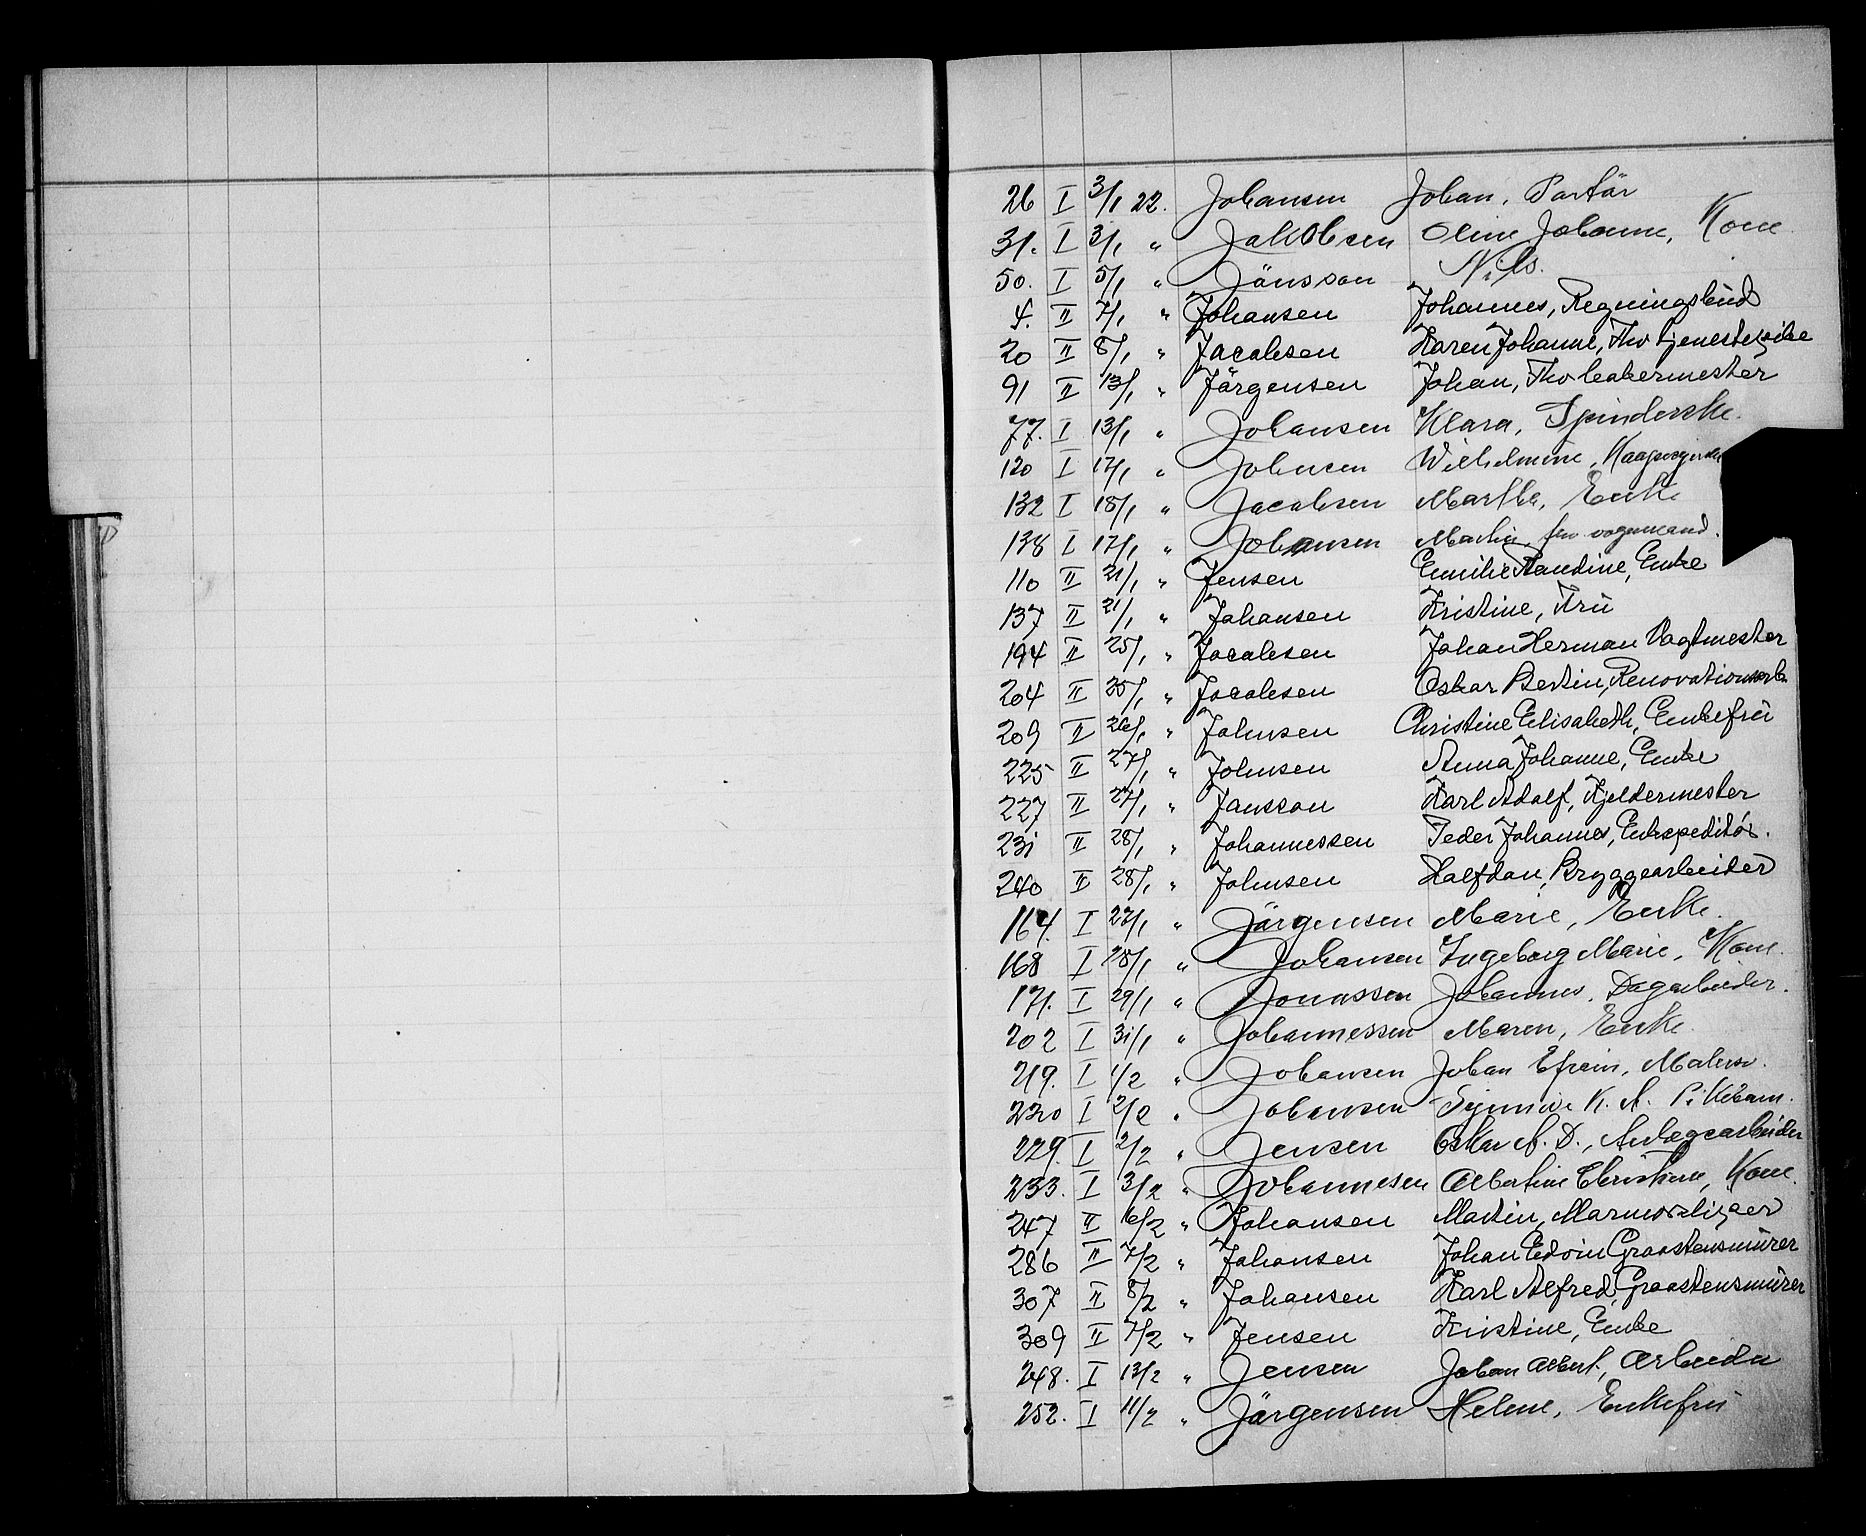 26 I 3/1 22. Johansen Johan, Portør
31. I 3/1 " Jakobsen Oline Johanne, Kone
50. I 5/1 " Jönsson Nils.
4. II 7/1 " Johansen Johannes, Regningsbud
20 II 8/1 " Jacobsen Karen Johanne, Fhv tjenestepike
91 II 13/1 " Jørgensen Johan, Fhv bakermester
77. I 13/1 " Johansen Klara, Spinderske.
120 I 17/1 " Johnsen Wilhelmine,
132 I 18/1 " Jacobsen Marthe, Enke
138 I 17/1 " Johansen Martin, fhv vognmand.
110 II 21/1 " Jensen Emilie Randine, Enke
137 II 21/1 " Johansen Kristine, Fru
194 II 25/1 " Jacobsen Johan Herman Vagtmester
204 II 25/1 " Jacobsen Oskar Bertin, Renovationsarb.
209 II 26/1 " Johnsen Christine Elisabeth, Enkefru
225 II 27/1 " Johnsen Anna Johanne, Enke
227 II 27/1 " Jansson Karl Adolf, Kjeldermester
231 II 28/1 " Johannessen Peder Johannes, Enkspeditør.
240 II 28/1 " Johnsen Halfdan, Bryggearbeider
164. I 27/1 " Jørgensen Marie, Enke.
168 I 28/1 " Johansen Ingeborg Marie, Kone.
171. I 29/1 " Jonassen Johannes. Dagarbeider.
202 I 31/1 " Johannessen Maren, Enke.
219. I 1/2 " Johansen Johan Efraim, Malersv.
220 I 2/2 " Johansen Synnøve K. A. Pikebarn.
229. I 2/2 " Jensen Oskar A. D., Anlægsarbeider
233. I 3/2 " Johannesen Albertine Christiane, Kone.
247 II 6/2 " Johansen Martin, Marmorsliper
286 II 7/2 " Johansen Johan Edvin Graastensmurer
307 II 8/2 " Johansen Karl Alfred, Graastensmurer
309 II 7/2 " Jensen Kristine, Enke
248. I 13/2 " Jensen Johan Albert, Arbeider
252. I 11/2 " Jørgensen Helene, Enkefru